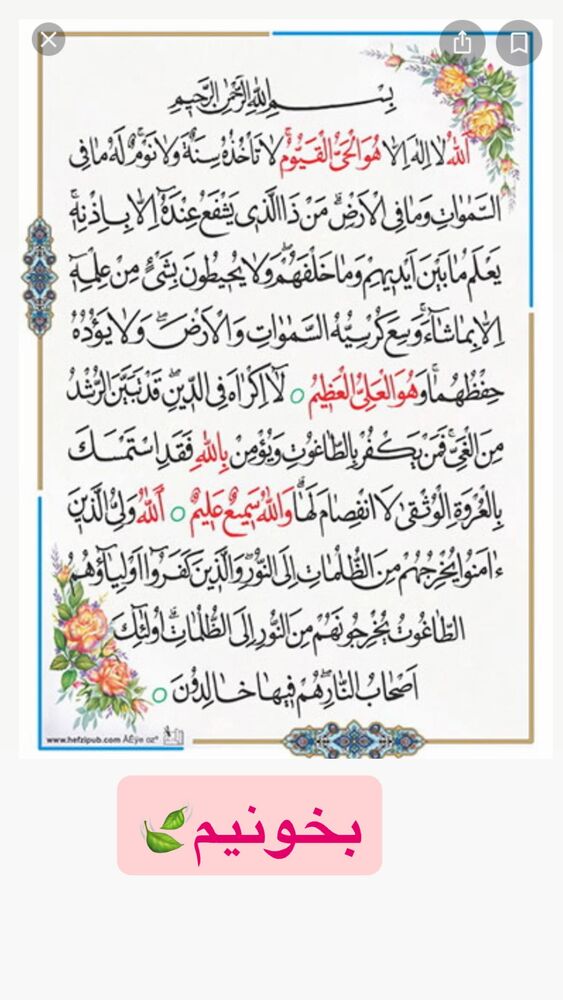 بِسْمِ اللهِ الرَّحْمٰنِ الرَّحِيمِ
اَللهُ لَا اِلٰهَ اِلَّا هُوَ الْحَىُّ الْقَيُّومُ لَا تَأْخُذُهُ سِنَةٌ وَلَا نَوْمٌ لَهُ مَا فِى
السَّمٰوَاتِ وَمَا فِى الْاَرْضِ مَنْ ذَا الَّذِى يَشْفَعُ عِنْدَهُ اِلَّا بِاِذْنِهِ
يَعْلَمُ مَا بَيْنَ اَيْدِيهِمْ وَمَا خَلْفَهُمْ وَلَا يُحِيطُونَ بِشَىْءٍ مِنْ عِلْمِهِ
اِلَّا بِمَا شَاءَ وَسِعَ كُرْسِيُّهُ السَّمٰوَاتِ وَالْاَرْضَ وَلَا يَؤُدُهُ
حِفْظُهُمَا وَهُوَ الْعَلِىُّ الْعَظِيمُ ○ لَا اِكْرَاهَ فِى الدِّينِ قَدْ تَبَيَّنَ الرُّشْدُ
مِنَ الْغَىِّ فَمَنْ يَكْفُرْ بِالطَّاغُوتِ وَيُؤْمِنْ بِاللهِ فَقَدِ اسْتَمْسَكَ
بِالْعُرْوَةِ الْوُثْقَىٰ لَا انْفِصَامَ لَهَا وَاللهُ سَمِيعٌ عَلِيمٌ ○ اَللهُ وَلِىُّ الَّذِينَ
ءَامَنُوا يُخْرِجُهُمْ مِنَ الظُّلُمَاتِ اِلَى النُّورِ وَالَّذِينَ كَفَرُوا اَوْلِيَاؤُهُمُ
الطَّاغُوتُ يُخْرِجُونَهُمْ مِنَ النُّورِ اِلَى الظُّلُمَاتِ اُولٰئِكَ
اَصْحَابُ النَّارِ هُمْ فِيهَا خَالِدُونَ ○
www.hefzipub.com
بخونیم